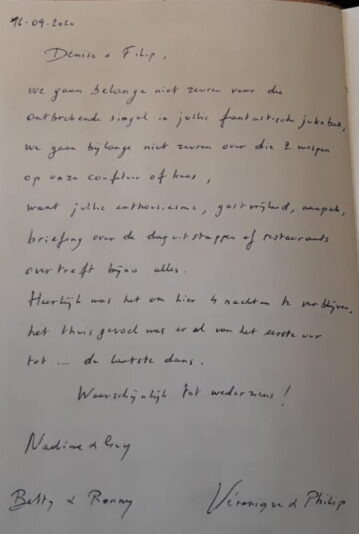 16-09-2020
Denise & Filip,
we gaan belange niet zeuren voor die
ontbrekende singel in jullie fantastische jukebox,
we gaan bijlange niet zeuren over die 2 wespen
op onze confituur of kaas,
want jullie enthousiasme, gastvrijheid, aanpak,
briefing over de daguitstappen of restaurants
overtreft bijna alles.
Heerlijk was het om hier 4 nachten te verblijven,
het thuisgevoel was er al van het eerste uur
tot ... de laatste dans.
Waarschijnlijk tot weder ziens!
Nadine & Guy
Betty & Ronny
Véronique & Philip